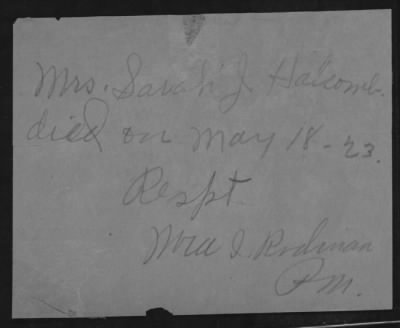 Mrs. Sarah J. Halcomb.
died on May 18-23.
Respt.
I. Rodman
P.M.